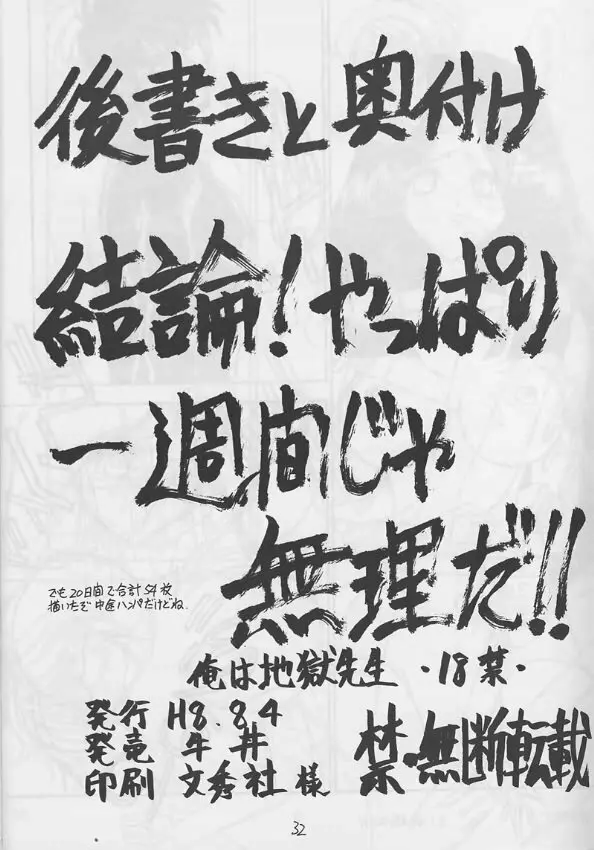 後書きと奥付け
結論!やっぱり
一週間じゃ
無理だ!!
でも20日間で合計54枚
描いたぞ 中途ハンパだけどね。
俺は地獄先生 ・18禁・
発行 H8.8.4
発竜 牛丼
印刷 文秀社様
禁・無断転載
32